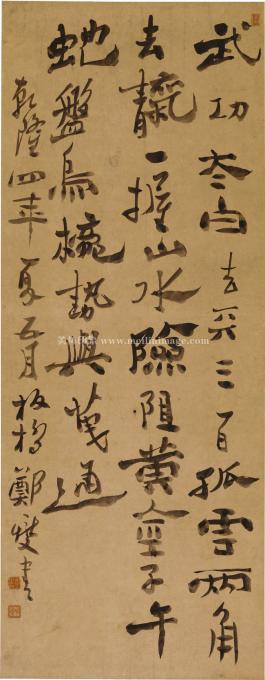 武功夳白去天三百孤雲兩角
去靝一握山水險阻黃金子午
虵盤烏櫳勢與通
乾隆四年夏五月板橋鄭燮書